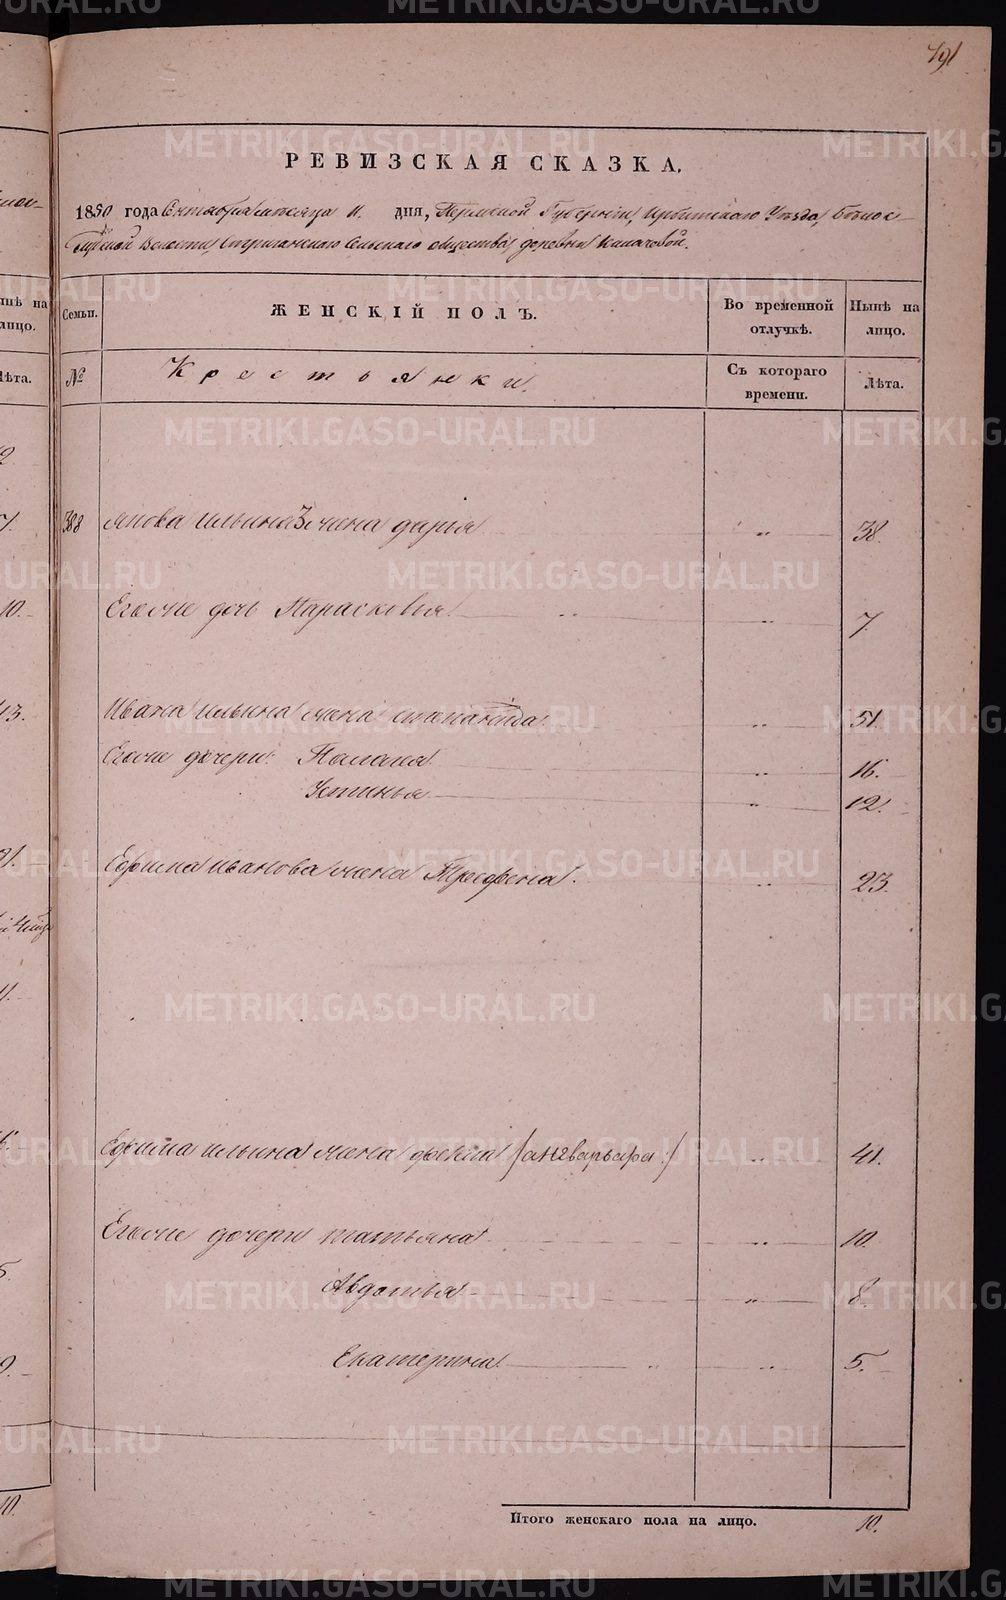 191
РЕВИЗСКАЯ СКАЗКА.
1850 года Сентября месяца 11. дня, Пермской Губерніи, Ирбитскаго Уѣзда, Бѣлос-
лудской Волости, Стриганскаго Сельскаго общества, деревни
Семьи.
ЖЕНСКІЙ ПОЛЪ.
Во временной отлучкѣ.
Нынѣ на лицо.
№
Крестьянки.
Съ котораго времени.
Лѣта.
388 Ильина жена дарья " 38.
Егоже дочь Парасковья " " 7.
Ивана ильина жена степанида " 51.
Егоже дочери: Палагея " 16.
Устинья " 12.
Ефрима иванова жена " 23.
Ефима ильина жена " 41.
Егоже дочери татьяна " 10.
Авдотья " 8.
Екатерина " " 5.
Итого женскаго пола на лицо. 10.
METRIKI.GASO-URAL.RU